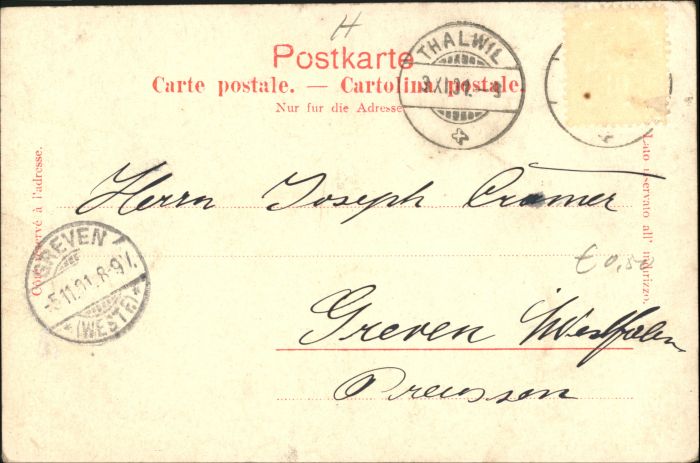 H
Postkarte
Carte postale. — Cartolina postale.
Nur fur die Adresse.
THALWIL
Côté réservé à l'adresse.
Lato riservato all' indirizzo.
Herrn Joseph Cramer
GREVEN
-5.11.01.8-9V.
*(WESTF)*
€ 0,50
Greven Westfalen
Preussen